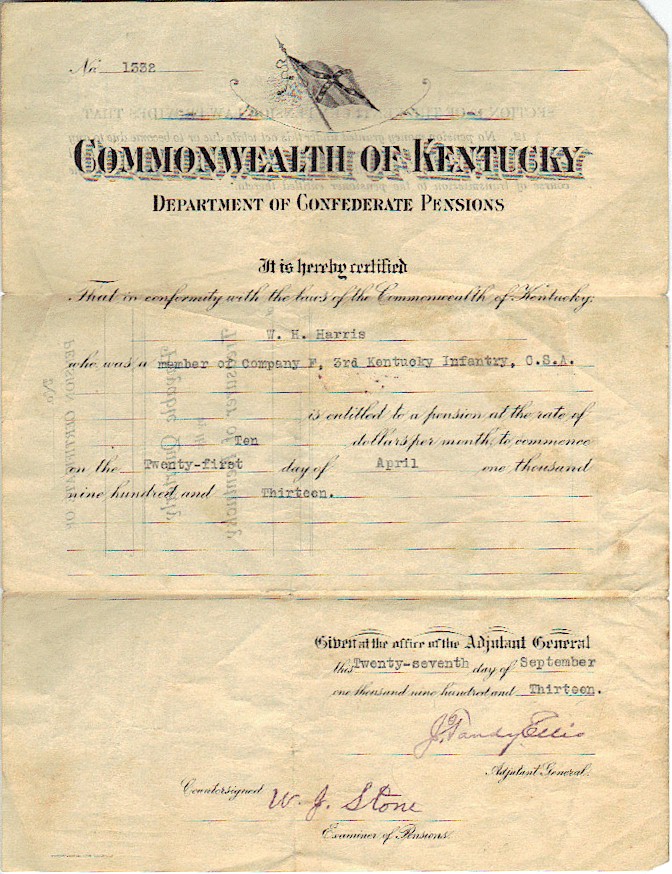 No 1332
COMMONWEALTH OF KENTUCKY
DEPARTMENT OF CONFEDERATE PENSIONS
It is hereby certified
That in conformity with the laws of the Commonwealth of Kentucky:
W. H. Harris
who was a member of Company F, 3rd Kentucky Infantry, C.S.A.
is entitled to a pension at the rate of
Ten dollars per month, to commence
on the Twenty-first day of April one thousand
nine hundred and Thirteen.
Given at the office of the Adjutant General
this Twenty-seventh day of September
one thousand nine hundred and Thirteen.
J. Tandy Ellis
Adjutant General.
Countersigned W. J. Stone
Examiner of Pensions.